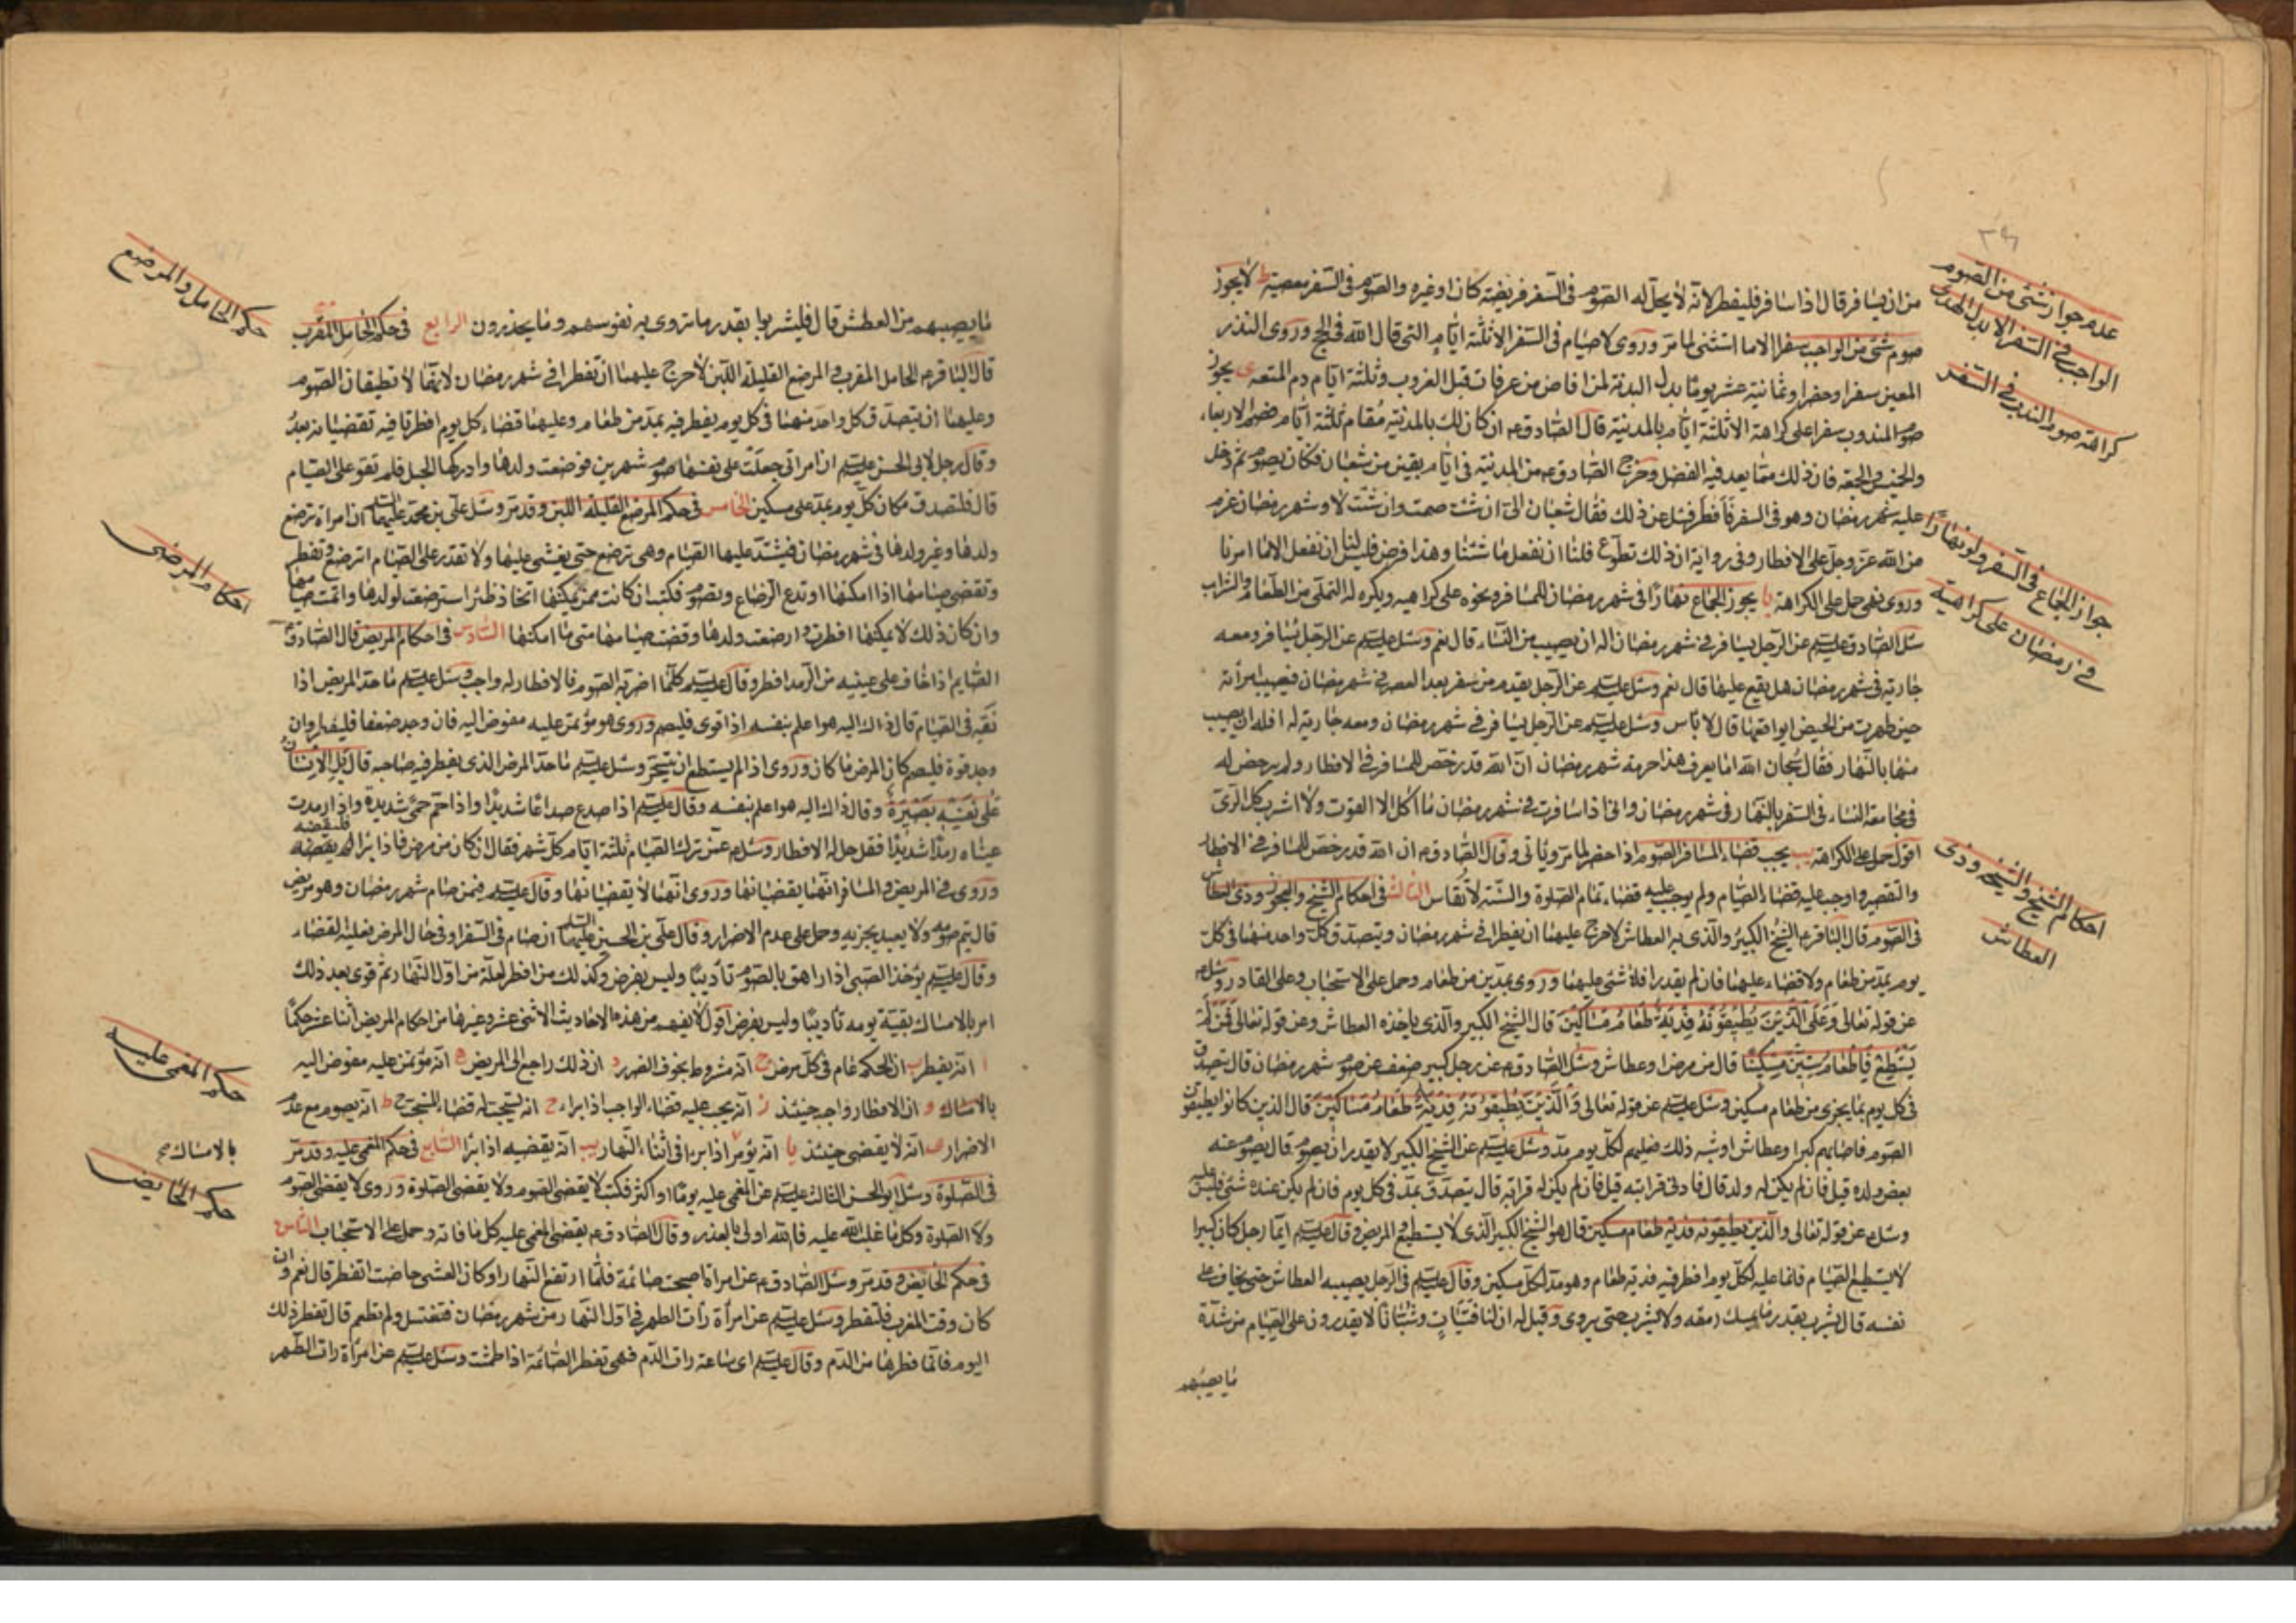 عدم جواز شئ من الصوم
الواجب في السفر الا بدل الهدى
كراهة صوم الندب في السفر
من ان يسافر قال اذا سافر فليفطر لانه لا يحل له الصوم في السفر فريضة كان او غيره والصوم في السفر معصية ط لا يجوز
صوم شئ من الواجب سفرا الا ما استثنى لما مر وروى لا صيام في السفر الا ثلثة ايام التي قال الله في الحج وروى النذر
المعين سفرا وحضرا وثمانية عشر يوما بدل البدنة لمن افاض من عرفات قبل الغروب وثلثة ايام دم المتعة ى يجوز
صوم المندوب سفرا على كراهة الا ثلثة ايام بالمدينة قال الصادق ع ان كان لك بالمدينة مقام ثلثة ايام صم الاربعاء
والخميس والجمعة فان ذلك مما يعد فيه الفضل وخرج الصادق ع من المدينة في ايام بقين من شعبان فكان يصوم ثم دخل
عليه شهر رمضان وهو في السفر فافطر فسئل عن ذلك فقال شعبان الىّ ان شئت صمت وان شئت لا وشهر رمضان عزم
من الله عز وجل على الافطار وفي رواية ان ذلك تطوع فلنا ان نفعل ما شئنا وهذا فرض فليس لنا ان نفعل الا ما امرنا
وروى نهى حمل على الكراهة يا يجوز الجماع نهارا في شهر رمضان للمسافر ونحوه على كراهية ويكره له التملى من الطعام والشراب
سئل الصادق عليه السلم عن الرجل يسافر في شهر رمضان اله ان يصيب من النساء قال نعم وسئل عليه السلم عن الرجل يسافر ومعه
جاريته في شهر رمضان هل يقع عليها قال نعم وسئل عليه السلم عن الرجل يقدم من سفر بعد العصر في شهر رمضان فيصيب امرأته
حين طهرت من الحيض ايواقعها قال لا باس وسئل عليه السلم عن الرجل يسافر في شهر رمضان ومعه جارية له افله ان يصيب
منها بالنهار فقال سبحان الله اما يعرف هذا حرمة شهر رمضان ان الله قد رخص للمسافر في الافطار ولم يرخص له
في مجامعة النساء في السفر بالنهار في شهر رمضان وانى اذا سافرت في شهر رمضان ما آكل الا القوت ولا اشرب كل الرى
اقول حمل على الكراهة يب يجب قضاء المسافر الصوم اذا حضر لما مر وياتى وقال الصادق ع ان الله قد رخص للمسافر في الافطار
والتقصير واوجب عليه قضاء الصيام ولم يوجب عليه قضاء تمام الصلوة والسنة لا تقاس الثالث في احكام الشيخ والعجوز وذى العطاش
في الصوم قال الباقر ع الشيخ الكبير والذى به العطاش لا حرج عليهما ان يفطرا في شهر رمضان ويتصدق كل واحد منهما في كل
يوم بمد من طعام ولا قضاء عليهما فان لم يقدرا فلا شئ عليهما وروى بمدين من طعام وحمل على الاستحباب وعلى القادر وسئل ع
عن قوله تعالى وَعَلَى الَّذِينَ يُطِيقُونَهُ فِدْيَةٌ طَعَامُ مَسَاكِينَ قال الشيخ الكبير والذى ياخذه العطاش وعن قوله تعالى فَمَنْ لَمْ
يَسْتَطِعْ فَإِطْعَامُ سِتِّينَ مِسْكِينًا قال من مرض او عطاش وسئل الصادق ع عن رجل كبير ضعف عن صوم شهر رمضان قال يتصدق
في كل يوم بما يجزى من طعام مسكين وسئل عليه السلم عن قوله تعالى وَالَّذِينَ يُطِيقُونَهُ فِدْيَةٌ طَعَامُ مَسَاكِينَ قال الذين كانوا يطيقون
الصوم فاصابهم كبر او عطاش او شبه ذلك فعليهم لكل يوم مد وسئل عليه السلم عن الشيخ الكبير لا يقدر ان يصوم قال يصوم عنه
بعض ولده قيل فان لم يكن له ولد قال فادنى قرابته قيل فان لم يكن له قرابة قال يتصدق بمد في كل يوم فان لم يكن عنده شئ فليس عليه
وسئل ع عن قوله تعالى والذين يطيقونه فدية طعام مسكين قال هو الشيخ الكبير الذى لا يستطيع والمريض وقال عليه السلم ايما رجل كان كبيرا
لا يستطيع الصيام فانما عليه لكل يوم افطر فيه فدية طعام وهو مد لكل مسكين وقال عليه السلم في الرجل يصيبه العطاش حتى يخاف على
نفسه قال يشرب بقدر ما يمسك رمقه ولا يشرب حتى يروى وقيل له ان لنا فتيات وشبانا لا يقدرون على الصيام من شدة
ما يصيبهم
جواز الجماع في السفر ولو نهارا
في رمضان على كراهية
احكام الشيخ والشيخة وذى
العطاش
ما يصيبهم من العطش قال فليشربوا بقدر ما تروى به نفوسهم وما يحذرون الرابع في حكم الحامل المقرب
قال الباقر ع الحامل المقرب والمرضع القليلة اللبن لا حرج عليهما ان تفطرا في شهر رمضان لانهما لا تطيقان الصوم
وعليهما ان يتصدق كل واحد منهما في كل يوم يفطر فيه بمد من طعام وعليهما قضاء كل يوم افطرتا فيه تقضيانه بعد
وقال رجل لابى الحسن عليه السلم ان امراتى جعلت على نفسها صوم شهرين فوضعت ولدها وادركها الحبل فلم تقو على الصيام
قال فلتصدق مكان كل يوم بمد على مسكين الخامس في حكم المرضع القليلة اللبن وقد مر وسئل على بن محمد عليهما السلم ان امراة ترضع
ولدها وغير ولدها في شهر رمضان فيشتد عليها الصيام وهى ترضع حتى يغشى عليها ولا تقدر على الصيام اترضع وتفطر
وتقضى صيامها اذا امكنها او تدع الرضاع وتصوم فكتب ان كانت ممن يمكنها اتخاذ ظئر استرضعت لولدها واتمت صيامها
وان كان ذلك لا يمكنها افطرت وارضعت ولدها وقضت صيامها متى ما امكنها السادس في احكام المريض قال الصادق
الصايم اذا خاف على عينيه من الرمد افطر وقال عليه السلم كلما اضر به الصوم فالافطار له واجب وسئل عليه السلم ما حد المريض اذا
نقه في الصيام قال ذاك اليه هو اعلم بنفسه اذا قوى فليصم وروى هو مؤتمن عليه مفوض اليه فان وجد ضعفا فليفطر وان
وجد قوة فليصم كان المرض ما كان وروى اذا لم يستطع ان يتسحر وسئل عليه السلم ما حد المرض الذى يفطر فيه صاحبه قال بَلِ الْإِنْسَانُ
عَلَى نَفْسِهِ بَصِيرَةٌ وقال ذاك اليه هو اعلم بنفسه وقال عليه السلم اذا صدع صداعا شديدا واذا حم حمى شديدة واذا رمدت
عيناه رمدا شديدا فقد حل له الافطار وسئل ع عمن ترك الصيام ثلثة ايام كل شهر فقال ان كان من مرض فاذا برا فليقضه
وروى في المريض والمسافر انهما يقضيانها وروى انهما لا يقضيانها وقال عليه السلم فيمن صام شهر رمضان وهو مريض
قال يتم صومه ولا يعيد يجزيه وحمل على عدم الاضرار وقال على بن الحسين عليهما السلم ان صام في السفر او في حال المرض فعليه القضاء
وقال عليه السلم يؤخذ الصبى اذا راهق بالصوم تأديبا وليس بفرض وكذلك من افطر لعلة من اول النهار ثم قوى بعد ذلك
امر بالامساك بقية يومه تأديبا وليس بفرض اقول لا يفهم من هذه الاحاديث الاثنى عشر وغيرها من احكام المريض اثنا عشر حكما
ا انه يفطر ب ان الحكم عام في كل مرض ج انه مشروط بخوف الضرر د ان ذلك راجع الى المريض ه انه مؤتمن عليه مفوض اليه
بالامساك و ان الافطار واجب حينئذ ز انه يجب عليه قضاء الواجب اذا براء ح انه يستحب له قضاء المستحب ط انه يصوم مع عدم
الاضرار ى انه لا يقضى حينئذ يا انه يؤمر اذا برا في اثناء النهار يب انه يقضيه اذا برا السابع في حكم المغمى عليه وقد مر
في الصلوة وسئل ابو الحسن الثالث عليه السلم عن المغمى عليه يوما او اكثر فكتب لا يقضى الصوم ولا يقضى الصلوة وروى لا يقضى الصوم
ولا الصلوة وكل ما غلب الله عليه فالله اولى بالعذر وقال الصادق ع يقضى المغمى عليه كل ما فاته وحمل على الاستحباب الثامن
في حكم الحائض وقد مر وسئل الصادق ع عن امراة اصبحت صائمة فلما ارتفع النهار او كان العشى حاضت اتفطر قال نعم وان
كان وقت المغرب فلتفطر وسئل عليه السلم عن امرأة رأت الطهر في اول النهار من شهر رمضان فتغتسل ولم تطعم قال تفطر ذلك
اليوم فانما فطرها من الدم وقال عليه السلم اى ساعة رات الدم فهى تفطر الصائمة اذا طمثت وسئل عليه السلم عن امرأة رات الطهر
حكم الحامل والمرضع
احكام المرضى
حكم المغمى عليه
بالامساك
حكم الحايض